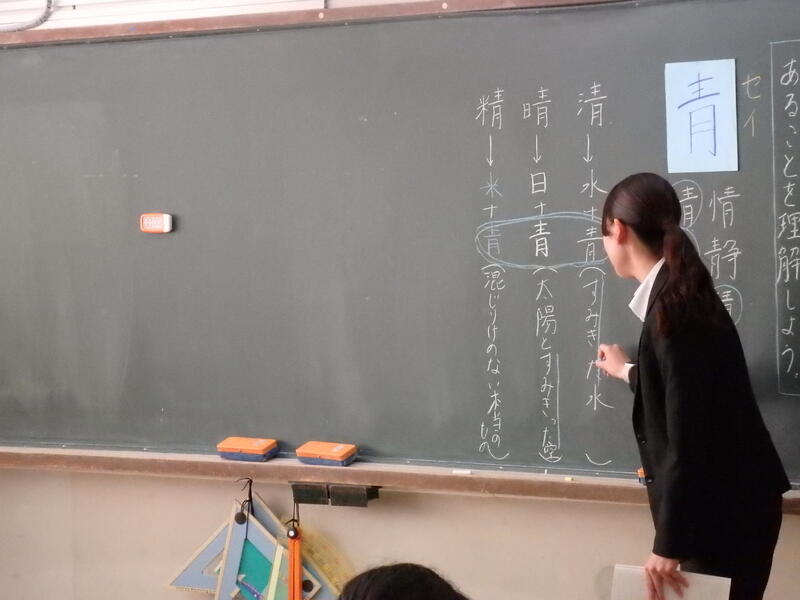 あることを理解しよう。
セイ
青
情静
清→水+青(すみき 水)
晴→日+青(太陽とすみきった空)
精→米+青(混じりけのない本当のもの)